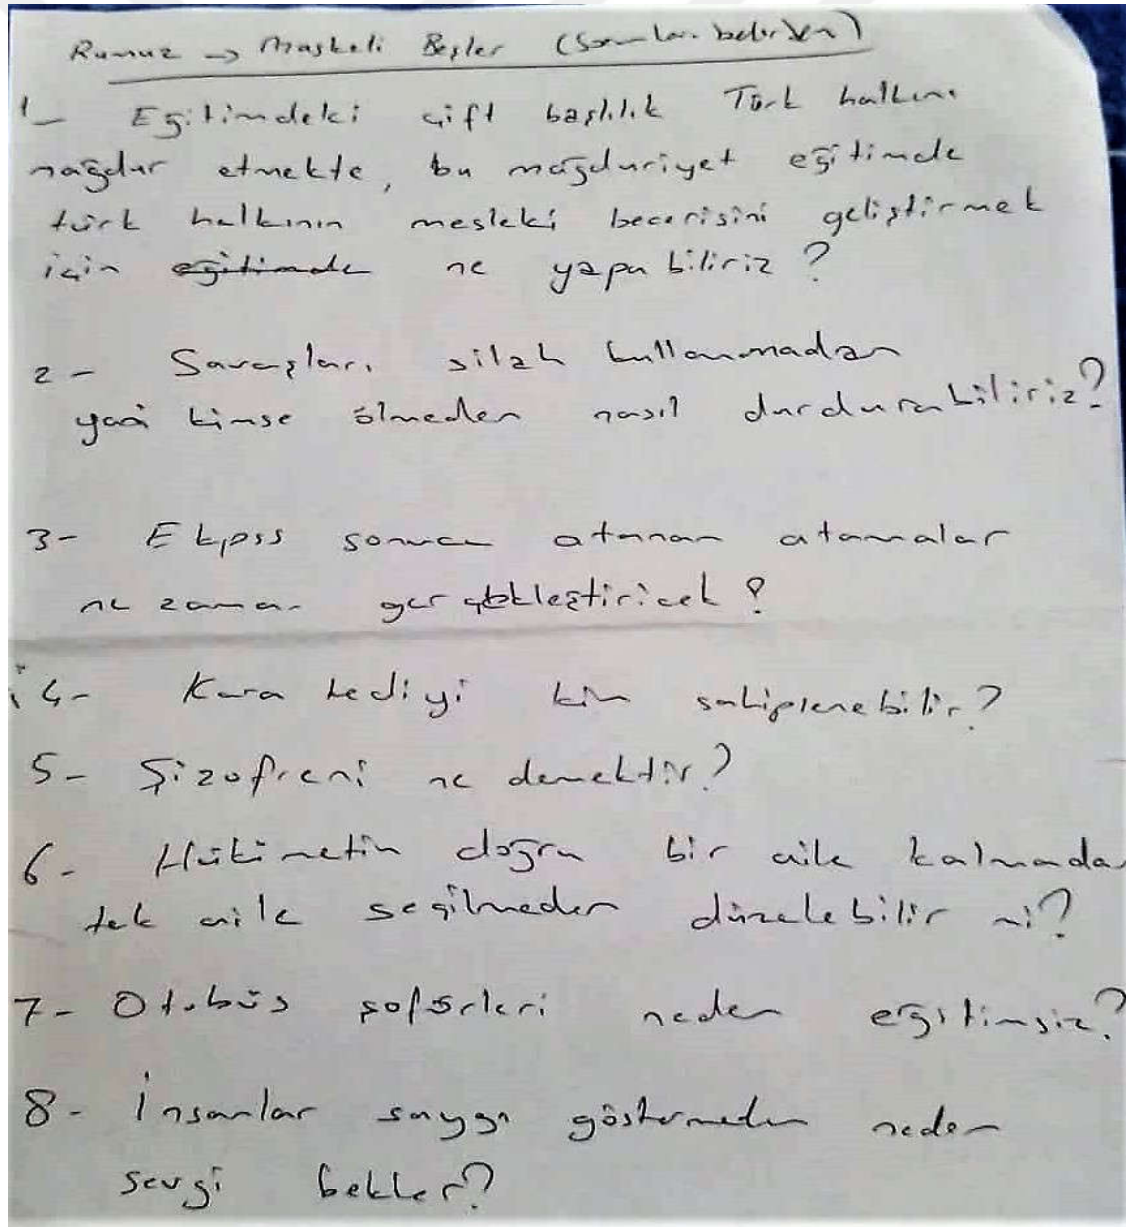 Rumuz → Maskeli Beşler (Soruları belirden)
1- Eğitimdeki çift başlılık Türk halkını
mağdur etmekte, bu mağduriyet eğitimde
türk halkının mesleki becerisini geliştirmek
için eğitimde ne yapabiliriz?
2- Savaşları silah kullanmadan
yani kimse ölmeden nasıl durdurabiliriz?
3- Ekpss sonucu atanan atamalar
ne zaman gerçekleştiricek?
4- Kara kediyi kim sahiplenebilir?
5- Şizofreni ne demektir?
6- Hükimetin doğru bir aile kalmadan
tek aile seçilmeden düzelebilir mi?
7- Otobüs şoförleri neden eğitimsiz?
8- İnsanlar saygı göstermeden neden
sevgi bekler?